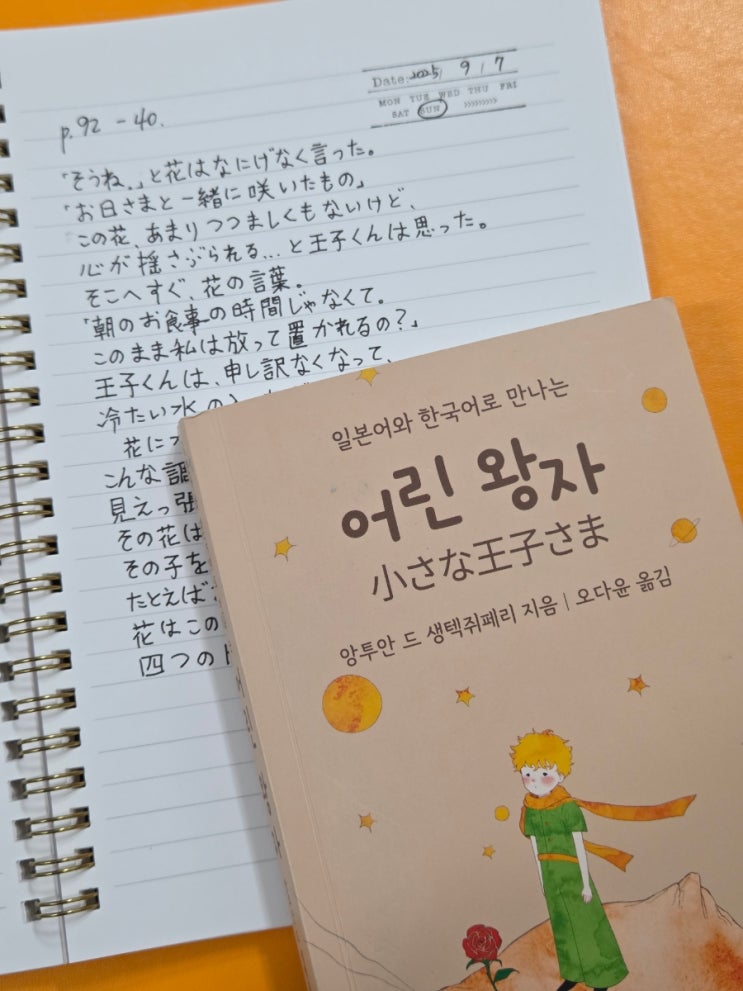 Date: 2025/ 9 / 7
MON TUE WED THU FRI
SAT SUN
p.92 -40.
「そうね。」と花はなにげなく言った。
「お日さまと一緒に咲いたもの」
この花、あまりつつましくもないけど、
心が揺さぶられる...と王子くんは思った。
そこへすぐ、花の言葉。
「朝のお食事の時間じゃなくて。
このまま私は放って置かれるの?」
王子くんは、申し訳なくなって、
冷たい水の
花に
こんな調
見えっ張
その花は
その子を
たとえば
花はこの
四つの
일본어와 한국어로 만나는
어린 왕자
小さな王子さま
앙투안 드 생텍쥐페리 지음 | 오다윤 옮김